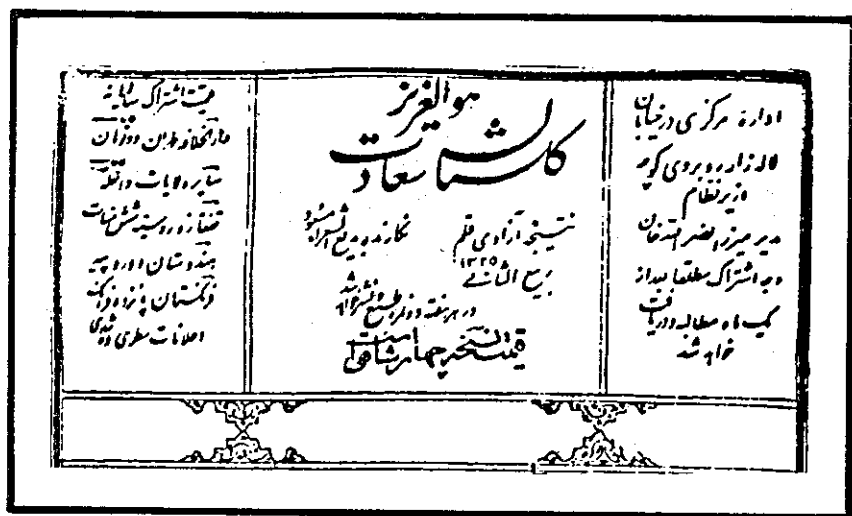 اداره مرکزی در خیابان
لاله زار روبروی کوچه
وزیر نظام
مدیر میرزا نصرالله خان
وجه اشتراک مطلقا بعد از
یک ماه مطالبه و دریافت
خواهد شد
هوالعزیز
گلستان سعادت
نتیجه آزادی قلم
نگارنده بدیع الشعراء
ربیع الثانی ۱۳۲۵
در هر هفته دو نمره طبع و نشر خواهد شد
قیمت یک نسخه چهار شاهی است
قیمت اشتراک سالیانه
دارالخلافه طهران دو تومان
سایر ولایات داخله
قفقاز و روسیه شش منات
هندوستان دو روپیه
فرنگستان پانزده فرانک
اعلانات سطری ده شاهی